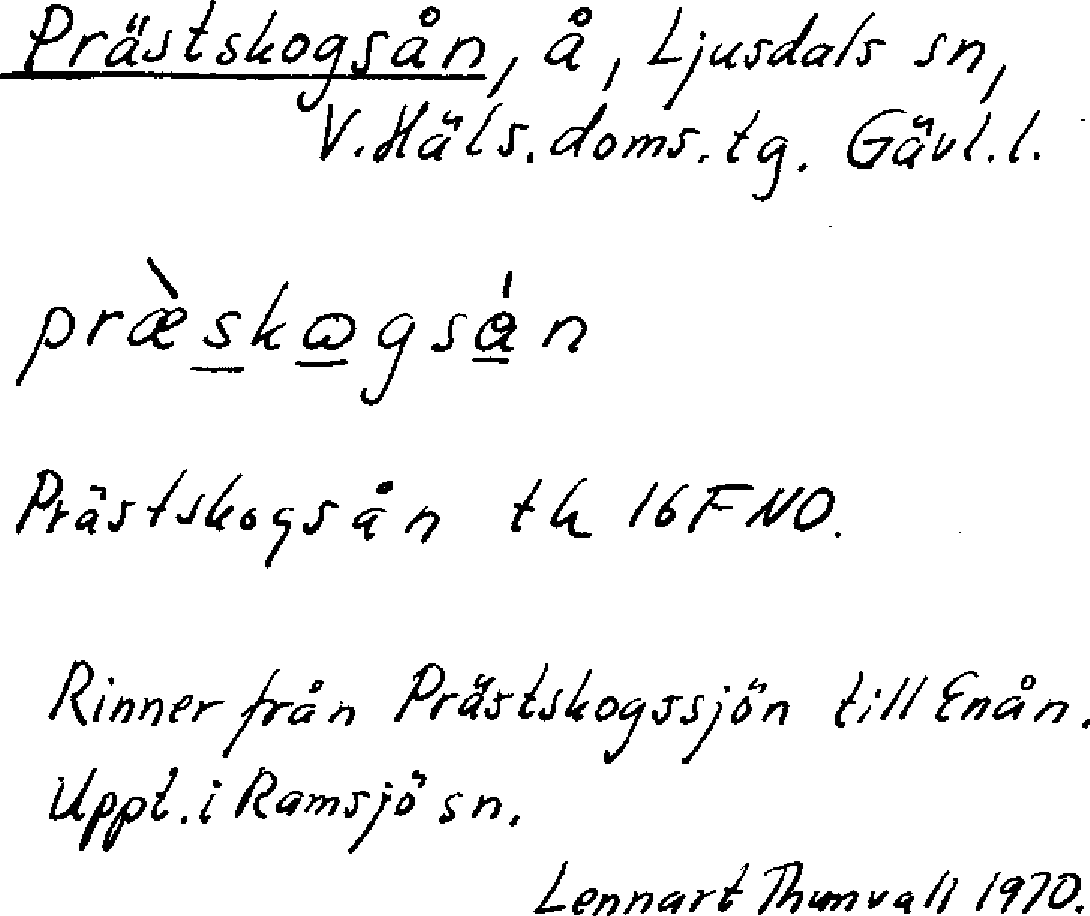 Prästskogsån, å, Ljusdals sn,
V. Häls. doms. tg. Gävl. l.
præ̀skωgsån
Prästskogsån tk 16F NO.
Rinner från Prästskogssjön till Enån.
Uppt. i Ramsjö sn.
Lennart Thunvall 1970.